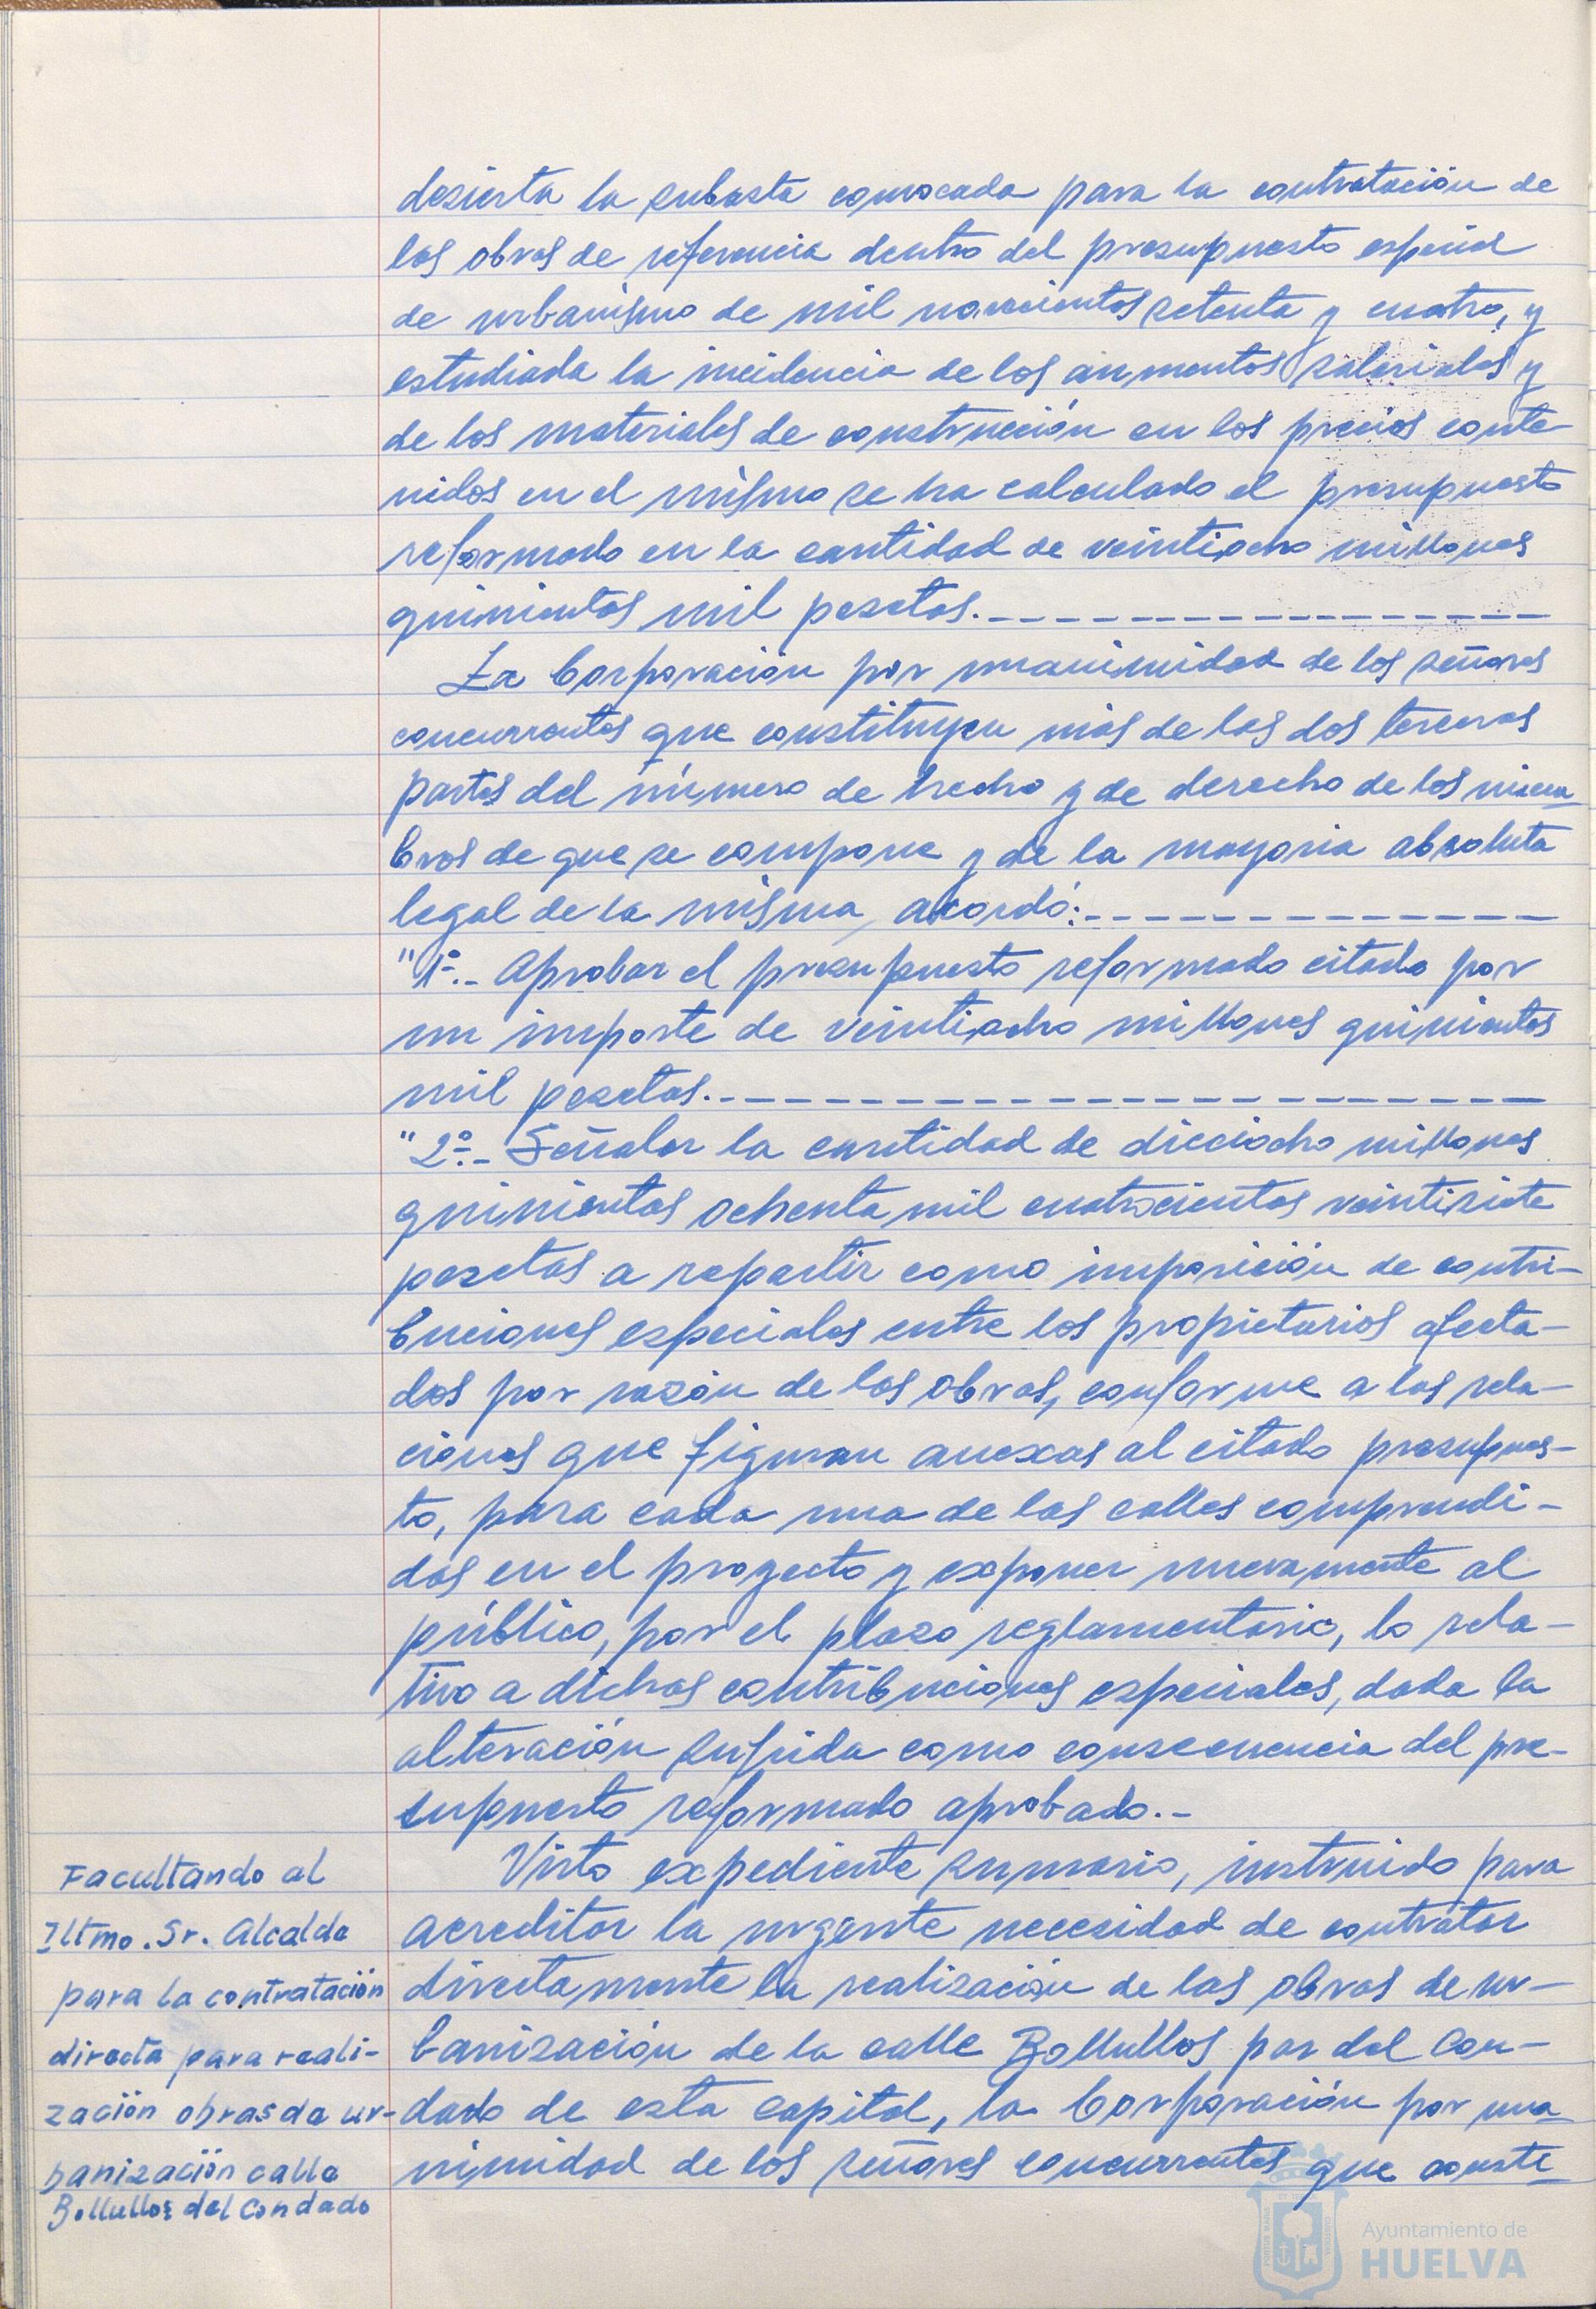 desierta la subasta convocada para la contratación de
las obras de referencia dentro del presupuesto especial
de urbanismo de mil novecientos setenta y cuatro, y
estudiada la incidencia de los aumentos salariales y
de los materiales de construcción en los precios conte-
nidos en el mismo se ha calculado el presupuesto
reformado en la cantidad de veintiocho millones
quinientas mil pesetas.
La Corporación por unanimidad de los señores
concurrentes que constituyen más de las dos terceras
partes del número de hecho y de derecho de los miem-
bros de que se compone y de la mayoria absoluta
legal de la misma, acordó:
"1º.- Aprobar el presupuesto reformado citado por
un importe de veintiocho millones quinientas
mil pesetas.
"2º.- Señalar la cantidad de dieciocho millones
quinientas ochenta mil cuatrocientas veintisiete
pesetas a repartir como imposición de contri-
buciones especiales entre los propietarios afecta-
dos por razón de las obras, conforme a las rela-
ciones que figuran anexas al citado presupues-
to, para cada una de las calles comprendi-
das en el proyecto y exponer nuevamente al
público, por el plazo reglamentario, lo rela-
tivo a dichas contribuciones especiales, dada la
alteración sufrida como consecuencia del pre-
supuesto reformado aprobado.-
Facultando al
Iltmo. Sr. Alcalde
para la contratación
directa para reali-
zación obras de ur-
banización calle
Bollullos del Condado
Visto expediente sumario, instruido para
acreditar la urgente necesidad de contratar
directamente la realización de las obras de ur-
banización de la calle Bollullos par del Con-
dado de esta capital, la Corporación por una
nimidad de los señores concurrentes que consti
Ayuntamiento de
HUELVA